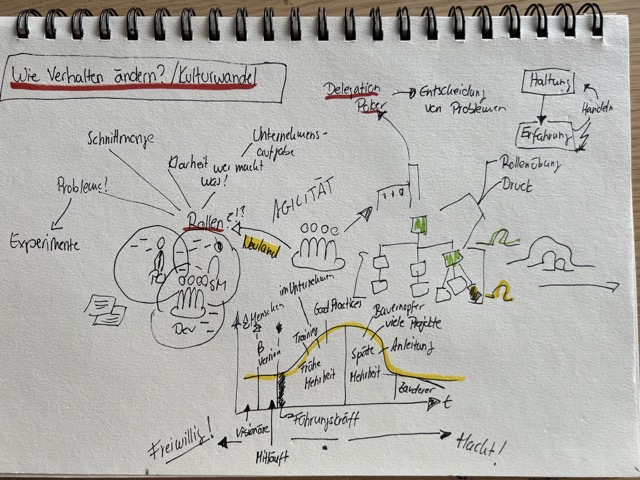 Wie Verhalten ändern? /Kulturwandel
Delegation
Poker
Entscheidung
von Problemen
Haltung
Handeln
Erfahrung
Schnittmenge
Klarheit wer macht
was?
Unternehmens-
aufgabe
Probleme!
Experimente
Rollen?!?
Neuland
AGILITÄT
Rollenübung
Druck
PO
SM
Dev
# Menschen
β
Version
Training
im Unternehmen
Good Practices
Bauernopfer
viele Projekte
Anleitung
Frühe
Mehrheit
Späte
Mehrheit
Zauderer
t
Führungskraft
Visionäre
Mitläuft
Freiwillig!
Macht!